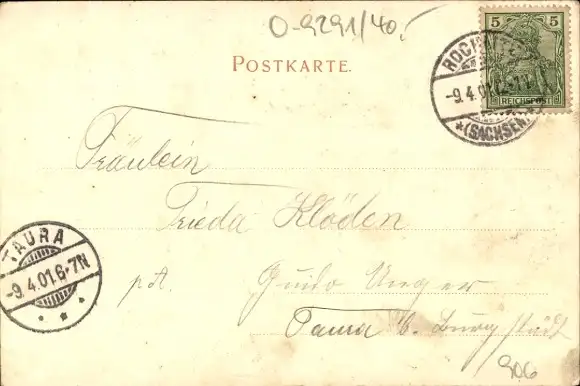 O-9291/40.
POSTKARTE.
5 5
REICHSPOST
-9.4.01.
*(SACHSEN)
Fräulein
Frieda Klöden
TAURA
-9.4.01.6-7N
p. A. Guido Unger
Taura b. Burgstädt
906